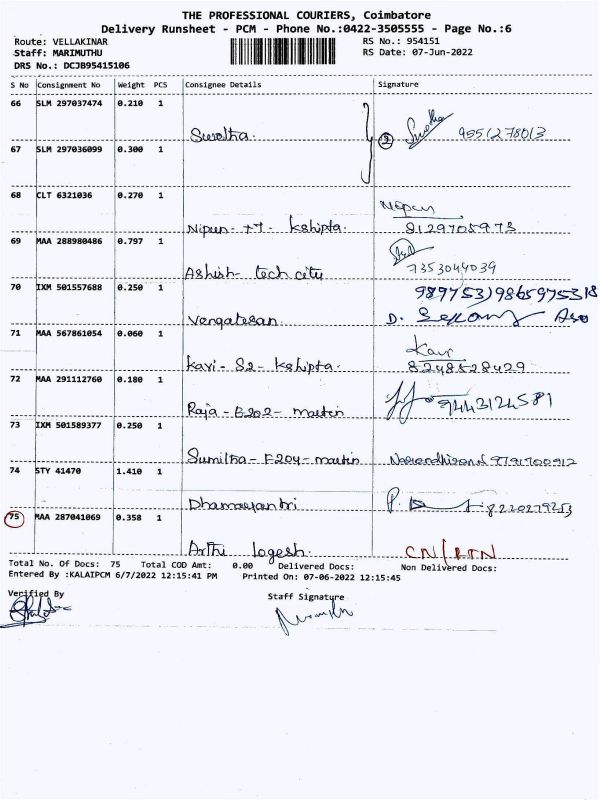 THE PROFESSIONAL COURIERS, Coimbatore
Delivery Runsheet - PCM - Phone No.:0422-3505555 - Page No.:6
Route: VELLAKINAR RS No.: 954151
Staff: MARIMUTHU RS Date: 07-Jun-2022
DRS No.: DCJB95415106
S No Consignment No Weight PCS Consignee Details Signature
66 SLM 297037474 0.210 1
Swetha. 2 9551278013
67 SLM 297036099 0.300 1
68 CLT 6321036 0.270 1
Nipun
Nipun - TT - Kshipta. 8129705973
69 MAA 288980486 0.797 1
Ashish - tech city 7353044039
70 IXM 501557688 0.250 1
Vengatesan D.
71 MAA 567861054 0.060 1
Kavi
Kavi - S2 - Kshipta. 8248528429
72 MAA 291112760 0.180 1
Raja - E202 - martin 9443124581
73 IXM 501589377 0.250 1
Sumitha - F204 - martin 9791700912
74 STY 41470 1.410 1
P. 8220279253
75 MAA 287041069 0.358 1
Arthi logesh. CN/RTN
Total No. Of Docs: 75 Total COD Amt: 0.00 Delivered Docs: Non Delivered Docs:
Entered By :KALAIPCM 6/7/2022 12:15:41 PM Printed On: 07-06-2022 12:15:45
Verified By Staff Signature